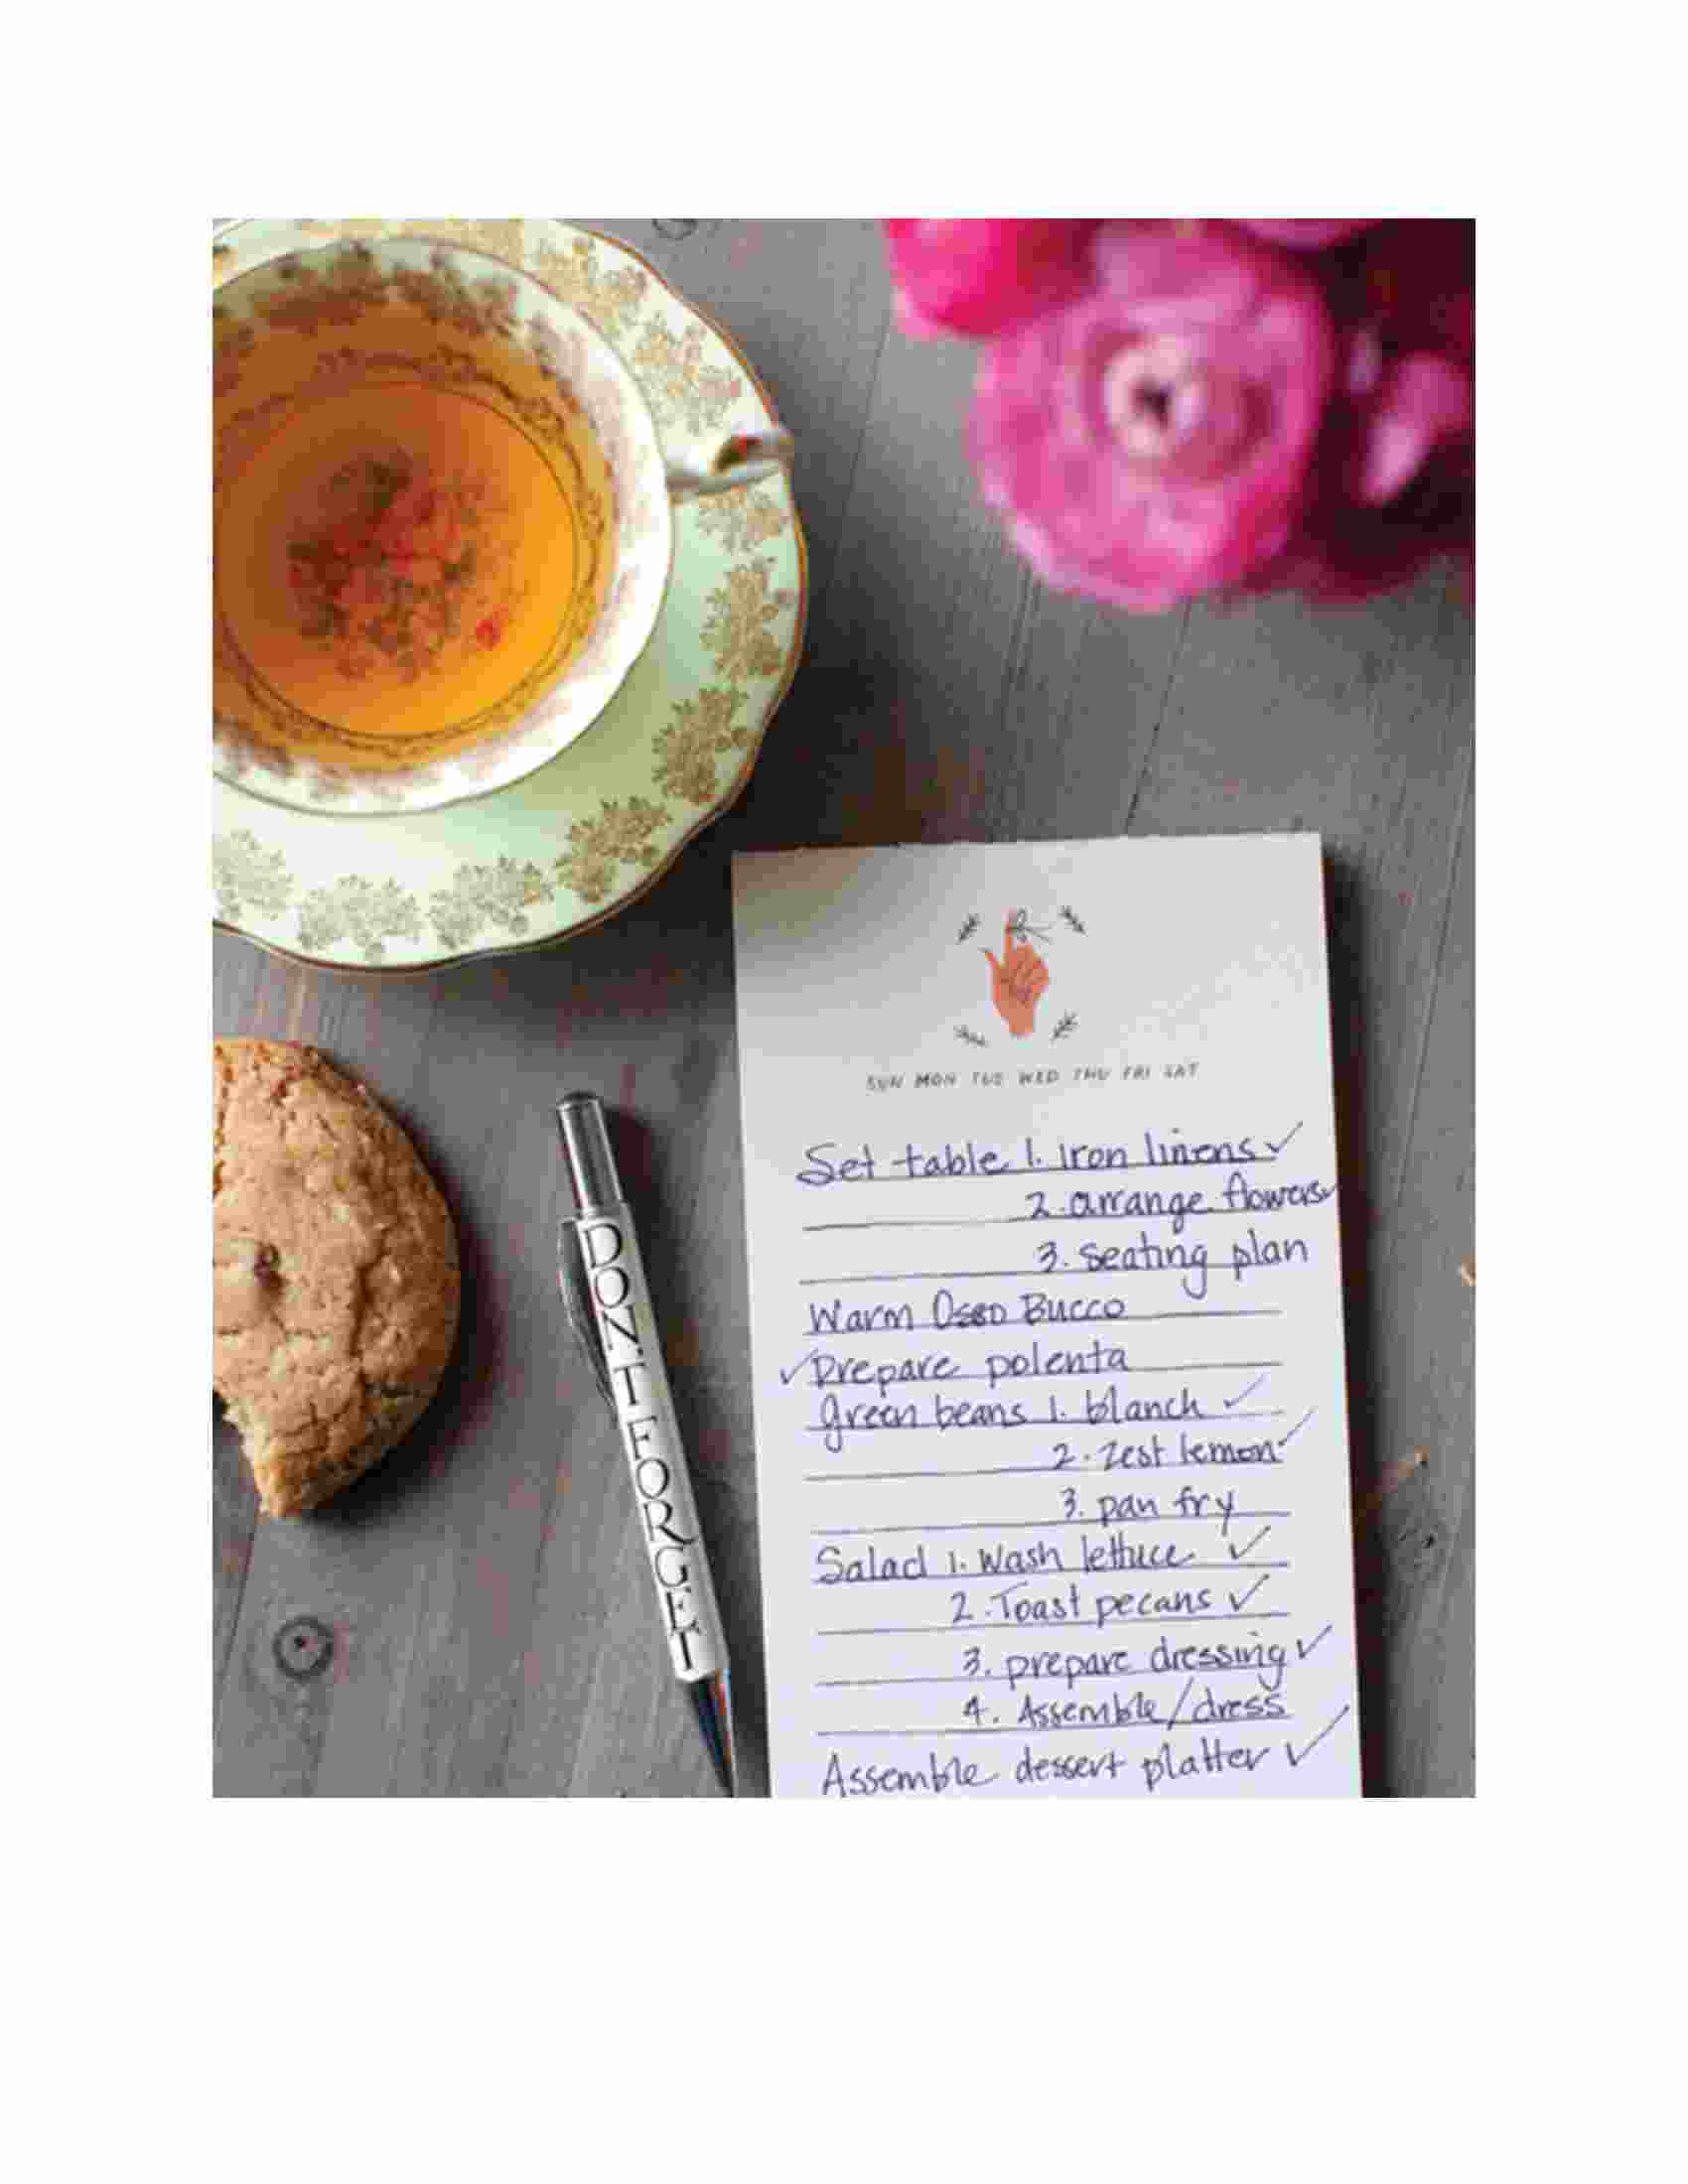 SUN MON TUE WED THU FRI SAT
Set table 1. Iron linens ✓
2. arrange flowers ✓
3. Seating plan
Warm Osso Bucco
✓ Prepare polenta
green beans 1. blanch ✓
2. zest lemon ✓
3. pan fry
Salad 1. Wash lettuce ✓
2. Toast pecans ✓
3. prepare dressing ✓
4. Assemble/dress
Assemble dessert platter ✓
DON'T FORGET